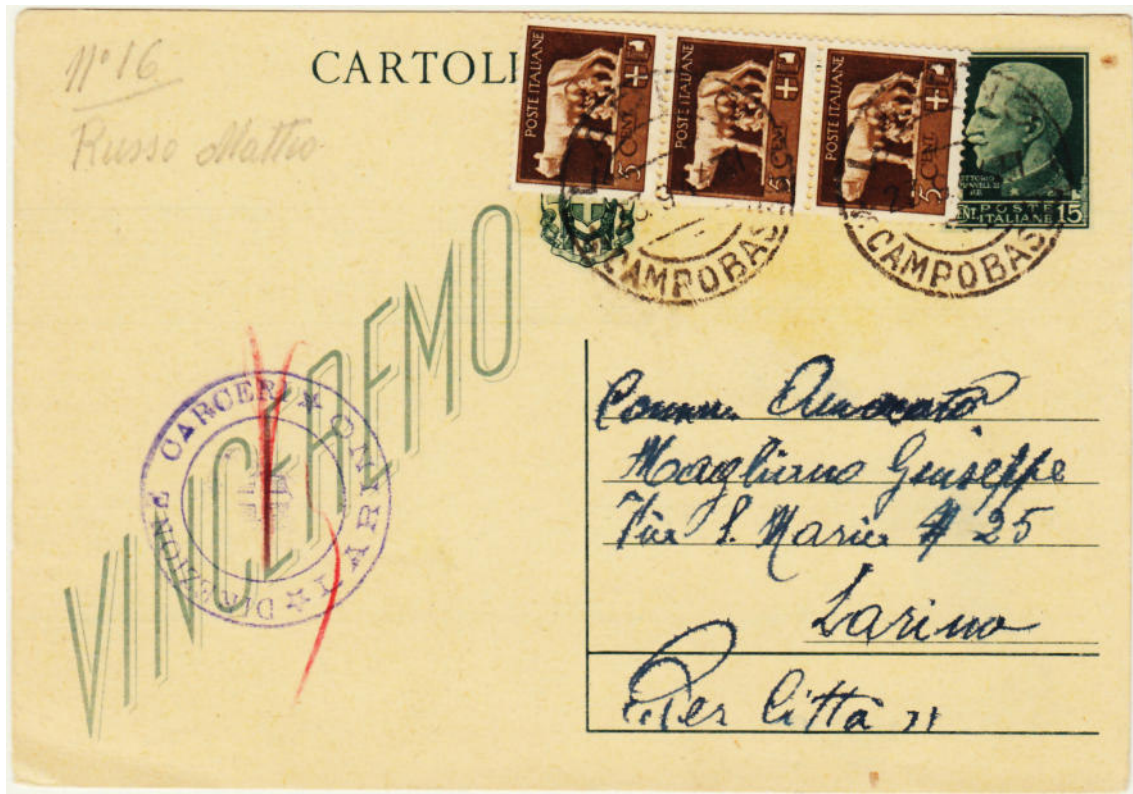 n° 16
Russo Matteo
CARTOLI
POSTE ITALIANE
5 CENT.
POSTE ITALIANE
5 CENT.
POSTE ITALIANE
5 CENT.
VITTORIO
EMANVELE III
RE
CENT. POSTE
ITALIANE 15
CAMPOBAS
CAMPOBAS
VINCEREMO
DIREZIONE CARCERI ★ LARINO ★
Avvocato
Magliano Giuseppe
Via S. Maria N 25
Larino
Per Città